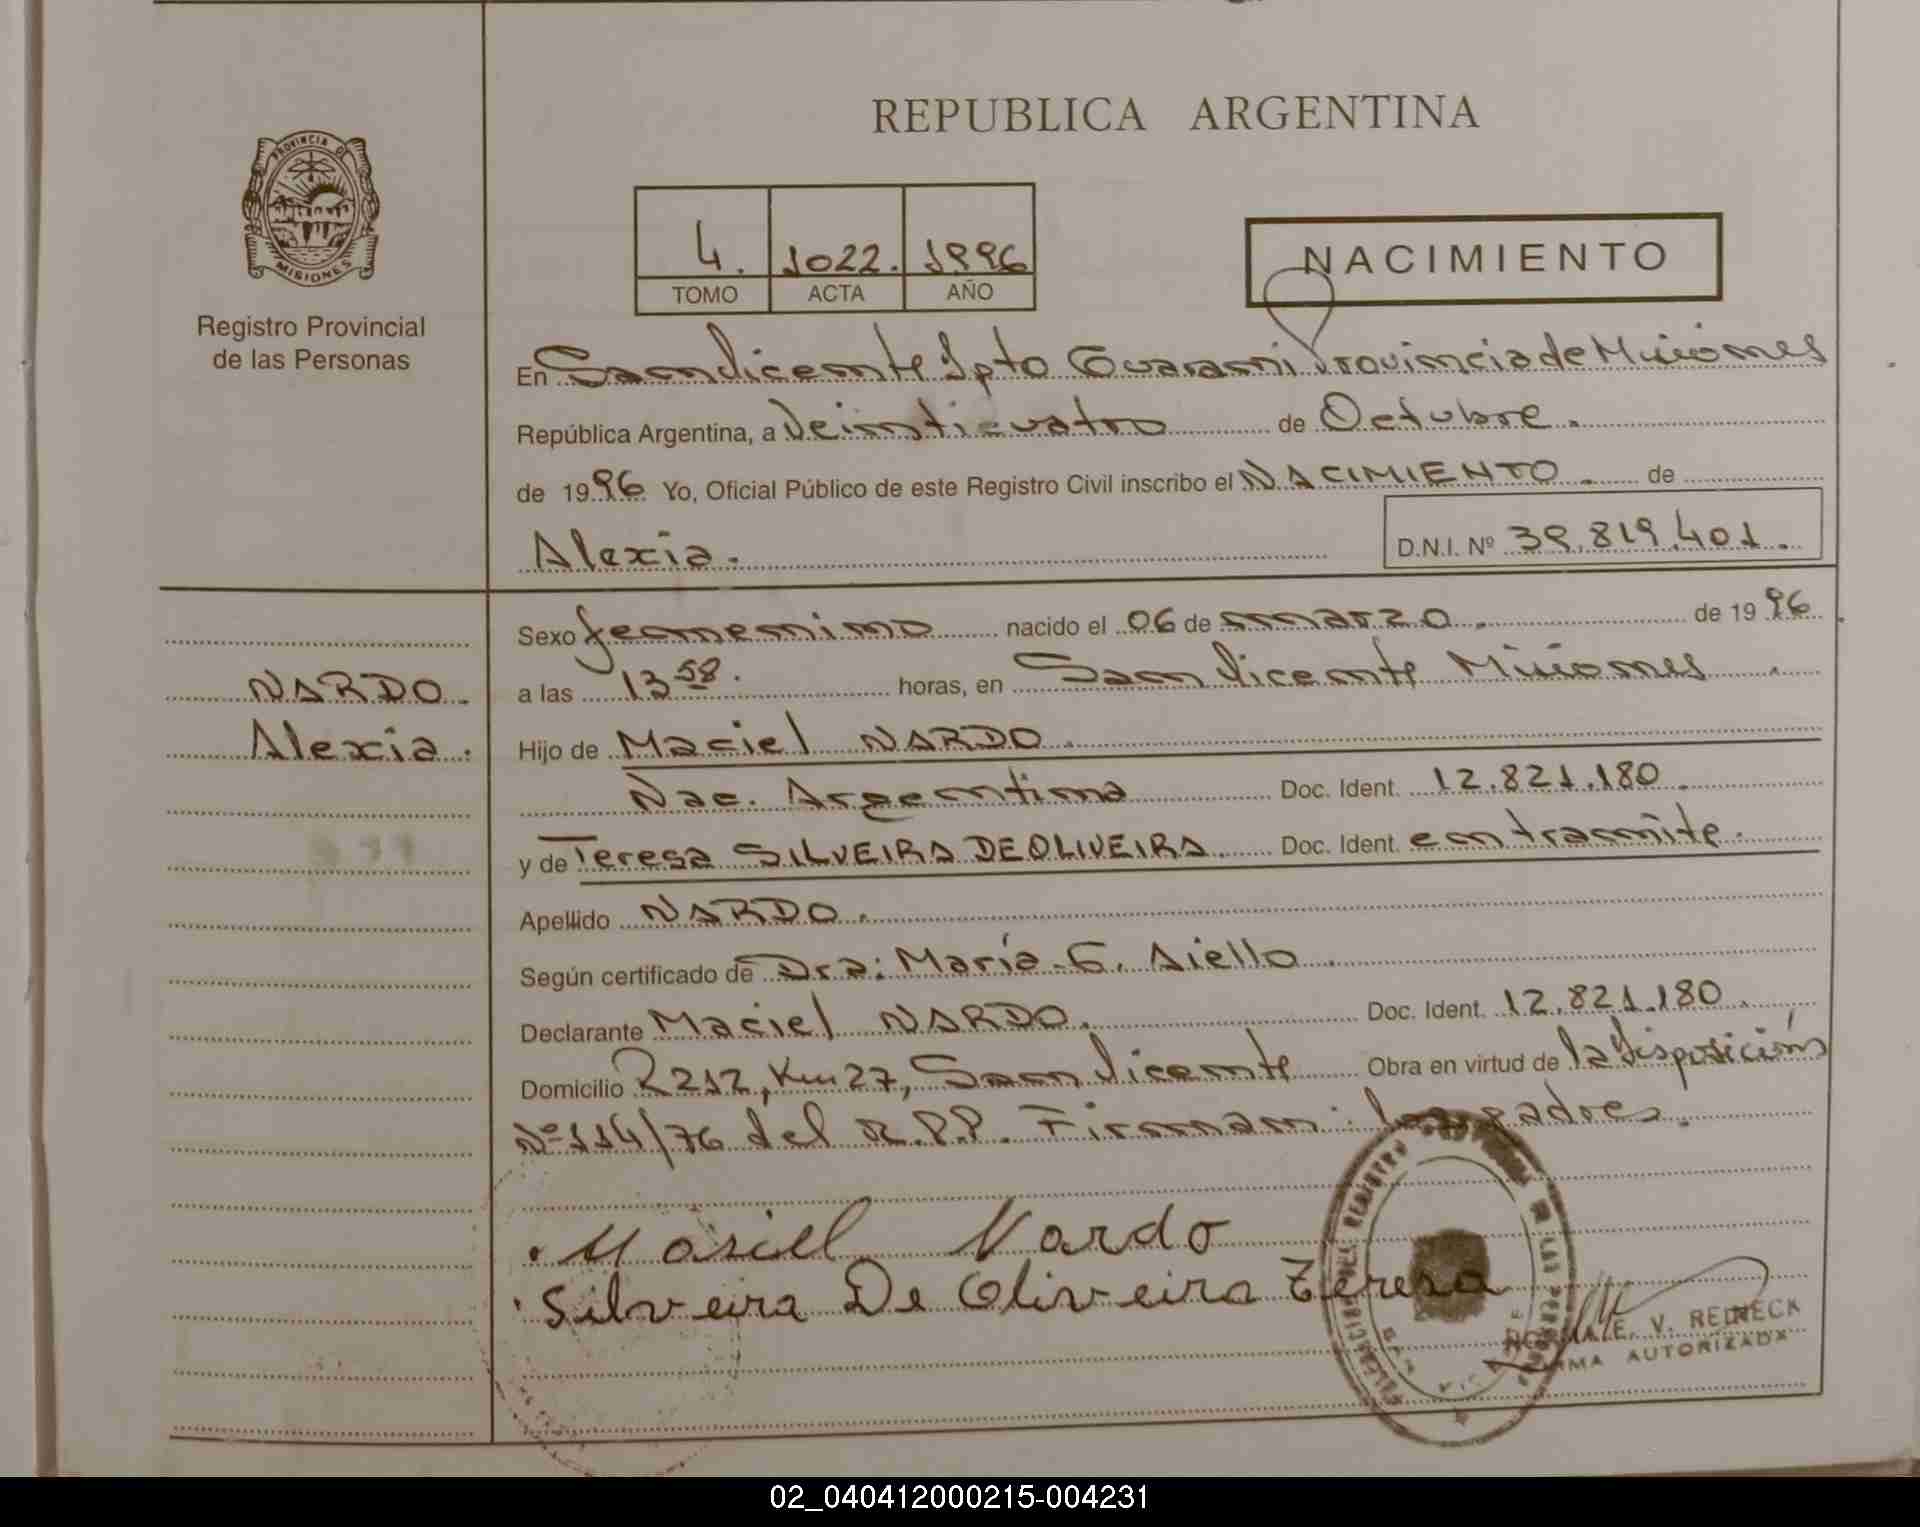 REPUBLICA ARGENTINA
PROVINCIA DE
MISIONES
Registro Provincial
de las Personas
4. 1022. 1996
TOMO ACTA AÑO
NACIMIENTO
En San Vicente Dpto Guarani Provincia de Misiones
República Argentina, a Veinticuatro de Octubre.
de 1996 Yo, Oficial Público de este Registro Civil inscribo el NACIMIENTO. de
Alexia. D.N.I. Nº 39.819.401.
Sexo femenino nacido el 06 de marzo. de 1996
NARDO. a las 13 58. horas, en San Vicente Misiones.
Alexia. Hijo de Maciel NARDO.
Nac. Argentina Doc. Ident. 12.821.180.
y de Teresa SILVEIRA DE OLIVEIRA. Doc. Ident. en tramite.
Apellido NARDO.
Según certificado de Dra: María G. Aiello.
Declarante Maciel NARDO. Doc. Ident. 12.821.180.
Domicilio R 212, Km 27, San Vicente Obra en virtud de la Disposición
Nº 114/76 del R.P.P. Firman: los padres.
Masiel Nardo
Silveira De Oliveira Teresa
NORMA E. V. REINECK
FIRMA AUTORIZADA
02_040412000215-004231